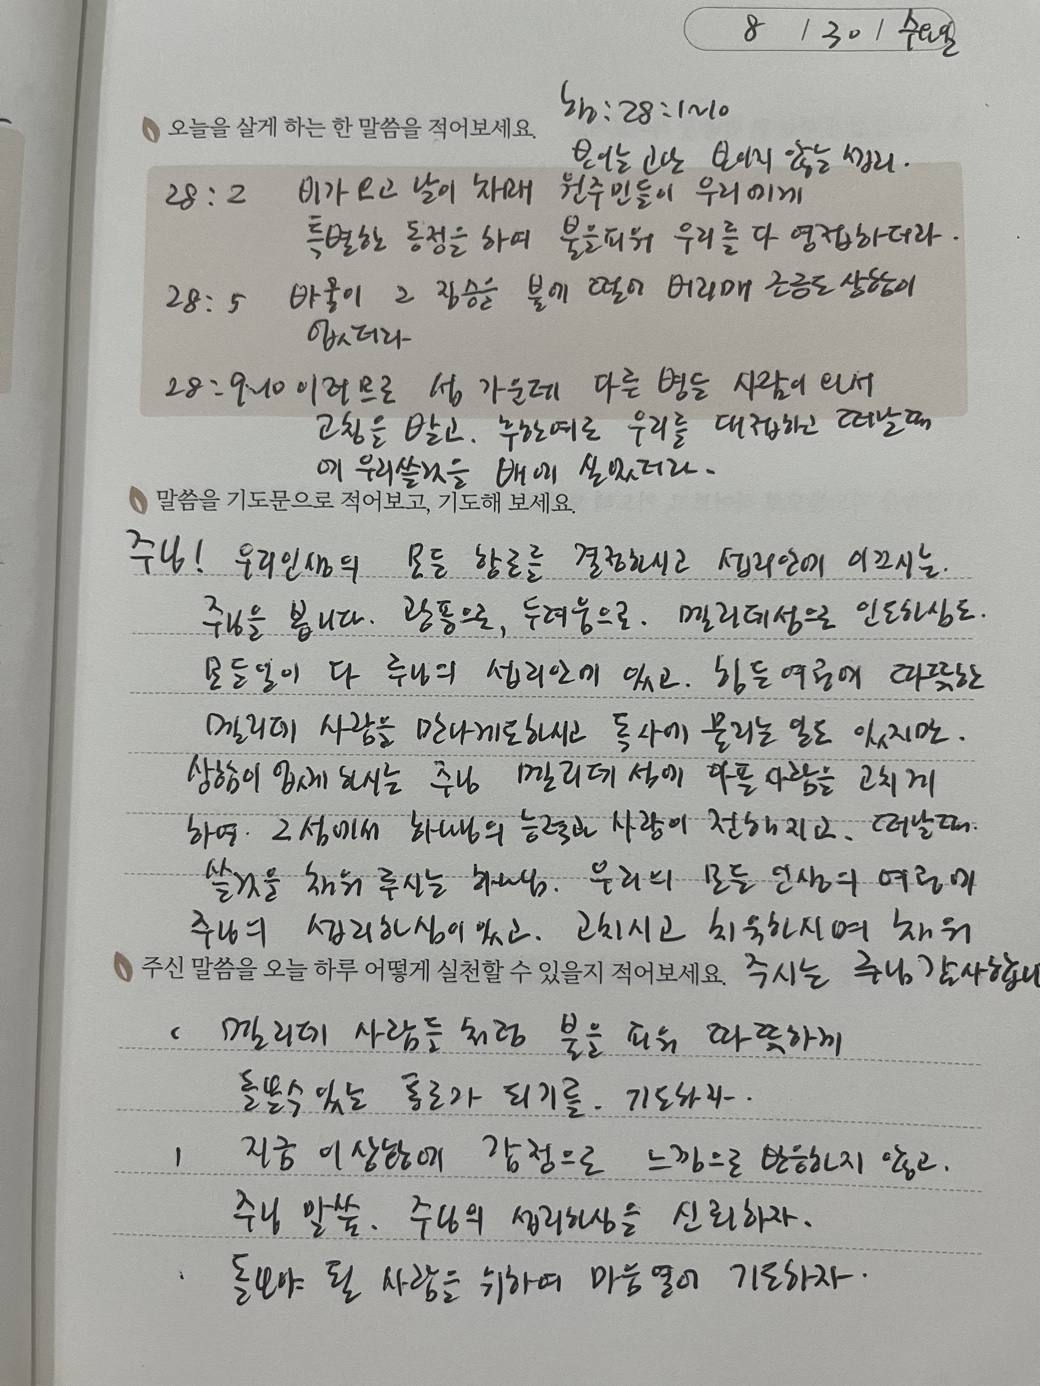 8 / 30 / 수요일
행:28:1~10
오늘을 살게 하는 한 말씀을 적어보세요.
보이는 고난 보이지 않는 섭리.
28:2 비가 오고 날이 차매 원주민들이 우리에게
특별한 동정을 하여 불을피워 우리를 다 영접하더라.
28:5 바울이 그 짐승을 불에 떨어 버리매 조금도 상함이
없더라
28:9~10 이러므로 섬 가운데 다른 병든 사람이 와서
고침을 받고. 후한예로 우리를 대접하고 떠날때
에 우리쓸것을 배에 실었더라.
말씀을 기도문으로 적어보고, 기도해 보세요.
주님! 우리인생의 모든 항로를 결정하시고 섭리안에 이끄시는.
주님을 봅니다. 광풍으로, 두려움으로. 멜리데섬으로 인도하심도.
모든일이 다 주님의 섭리안에 있고. 힘든여정에 따뜻한
멜리데 사람을 만나게도하시고 독사에 물리는 일도 있지만.
상함이 없게 하시는 주님 멜리데 섬에 아픈 사람을 고치게
하여. 그 섬에서 하나님의 능력과 사랑이 전해지고. 떠날때.
쓸것을 채워 주시는 하나님. 우리의 모든 인생의 여정에
주님의 섭리하심이 있고. 고치시고 치유하시며 채워
주신 말씀을 오늘 하루 어떻게 실천할 수 있을지 적어보세요. 주시는 주님 감사합니
멜리데 사람들처럼 불을 피워 따뜻하게
돌볼수있는 통로가 되기를. 기도하라.
지금 이상황에 감정으로 느낌으로 반응하지 않고.
주님 말씀. 주님의 섭리하심을 신뢰하자.
돌보아야 될 사람을 위하여 마음열어 기도하자.